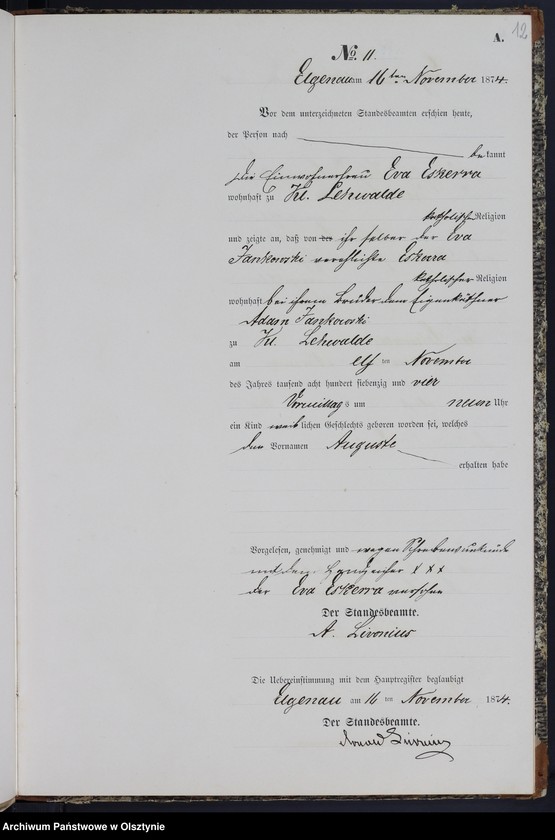 12
A.
No. 11.
Elgenau am 16ten November 1874.
Vor dem unterzeichneten Standesbeamten erschien heute,
der Person nach
bekannt
die Einwohnerfrau Eva Eskerra
wohnhaft zu Kl. Lehwalde
katholischer Religion
und zeigte an, daß von der ihr selber der Eva
Jankowski verehlichte Eskerra
katholischer Religion
wohnhaft bei ihrem Bruder dem Eigenkäthner
Adam Jankowski
zu Kl. Lehwalde
am elf ten November
des Jahres tausend acht hundert siebenzig und vier
Vormittags um neun Uhr
ein Kind weiblichen Geschlechts geboren worden sei, welches
den Vornamen Auguste
erhalten habe
Vorgelesen, genehmigt und wegen Schreibensunkunde
mit dem Handzeichen X X X
der Eva Eskerra versehen
Der Standesbeamte.
A. Livonius
Die Uebereinstimmung mit dem Hauptregister beglaubigt
Elgenau am 16 ten November 1874.
Der Standesbeamte.
Livonius
Archiwum Państwowe w Olsztynie